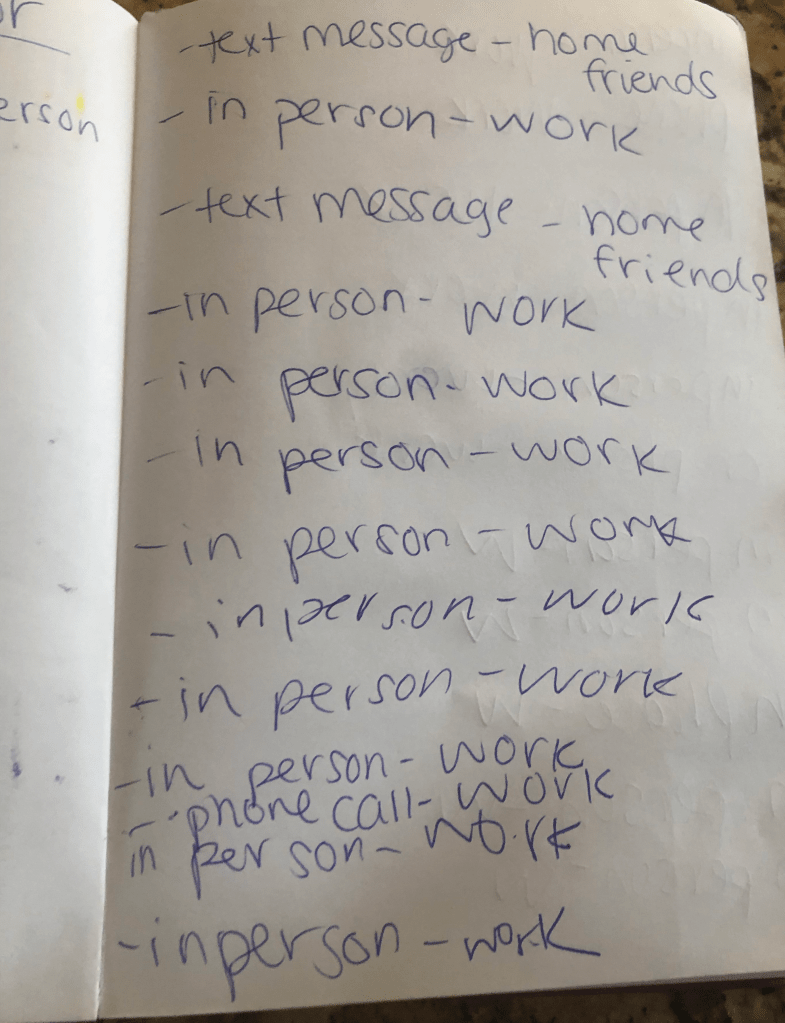 or
erson
-text message - home
friends
- in person - work
-text message - home
friends
-in person- work
-in person- work
-in person - work
-in person - work
- in person - work
-in person - work
-in person - work
- phone call- work
in person- work
-in person - work